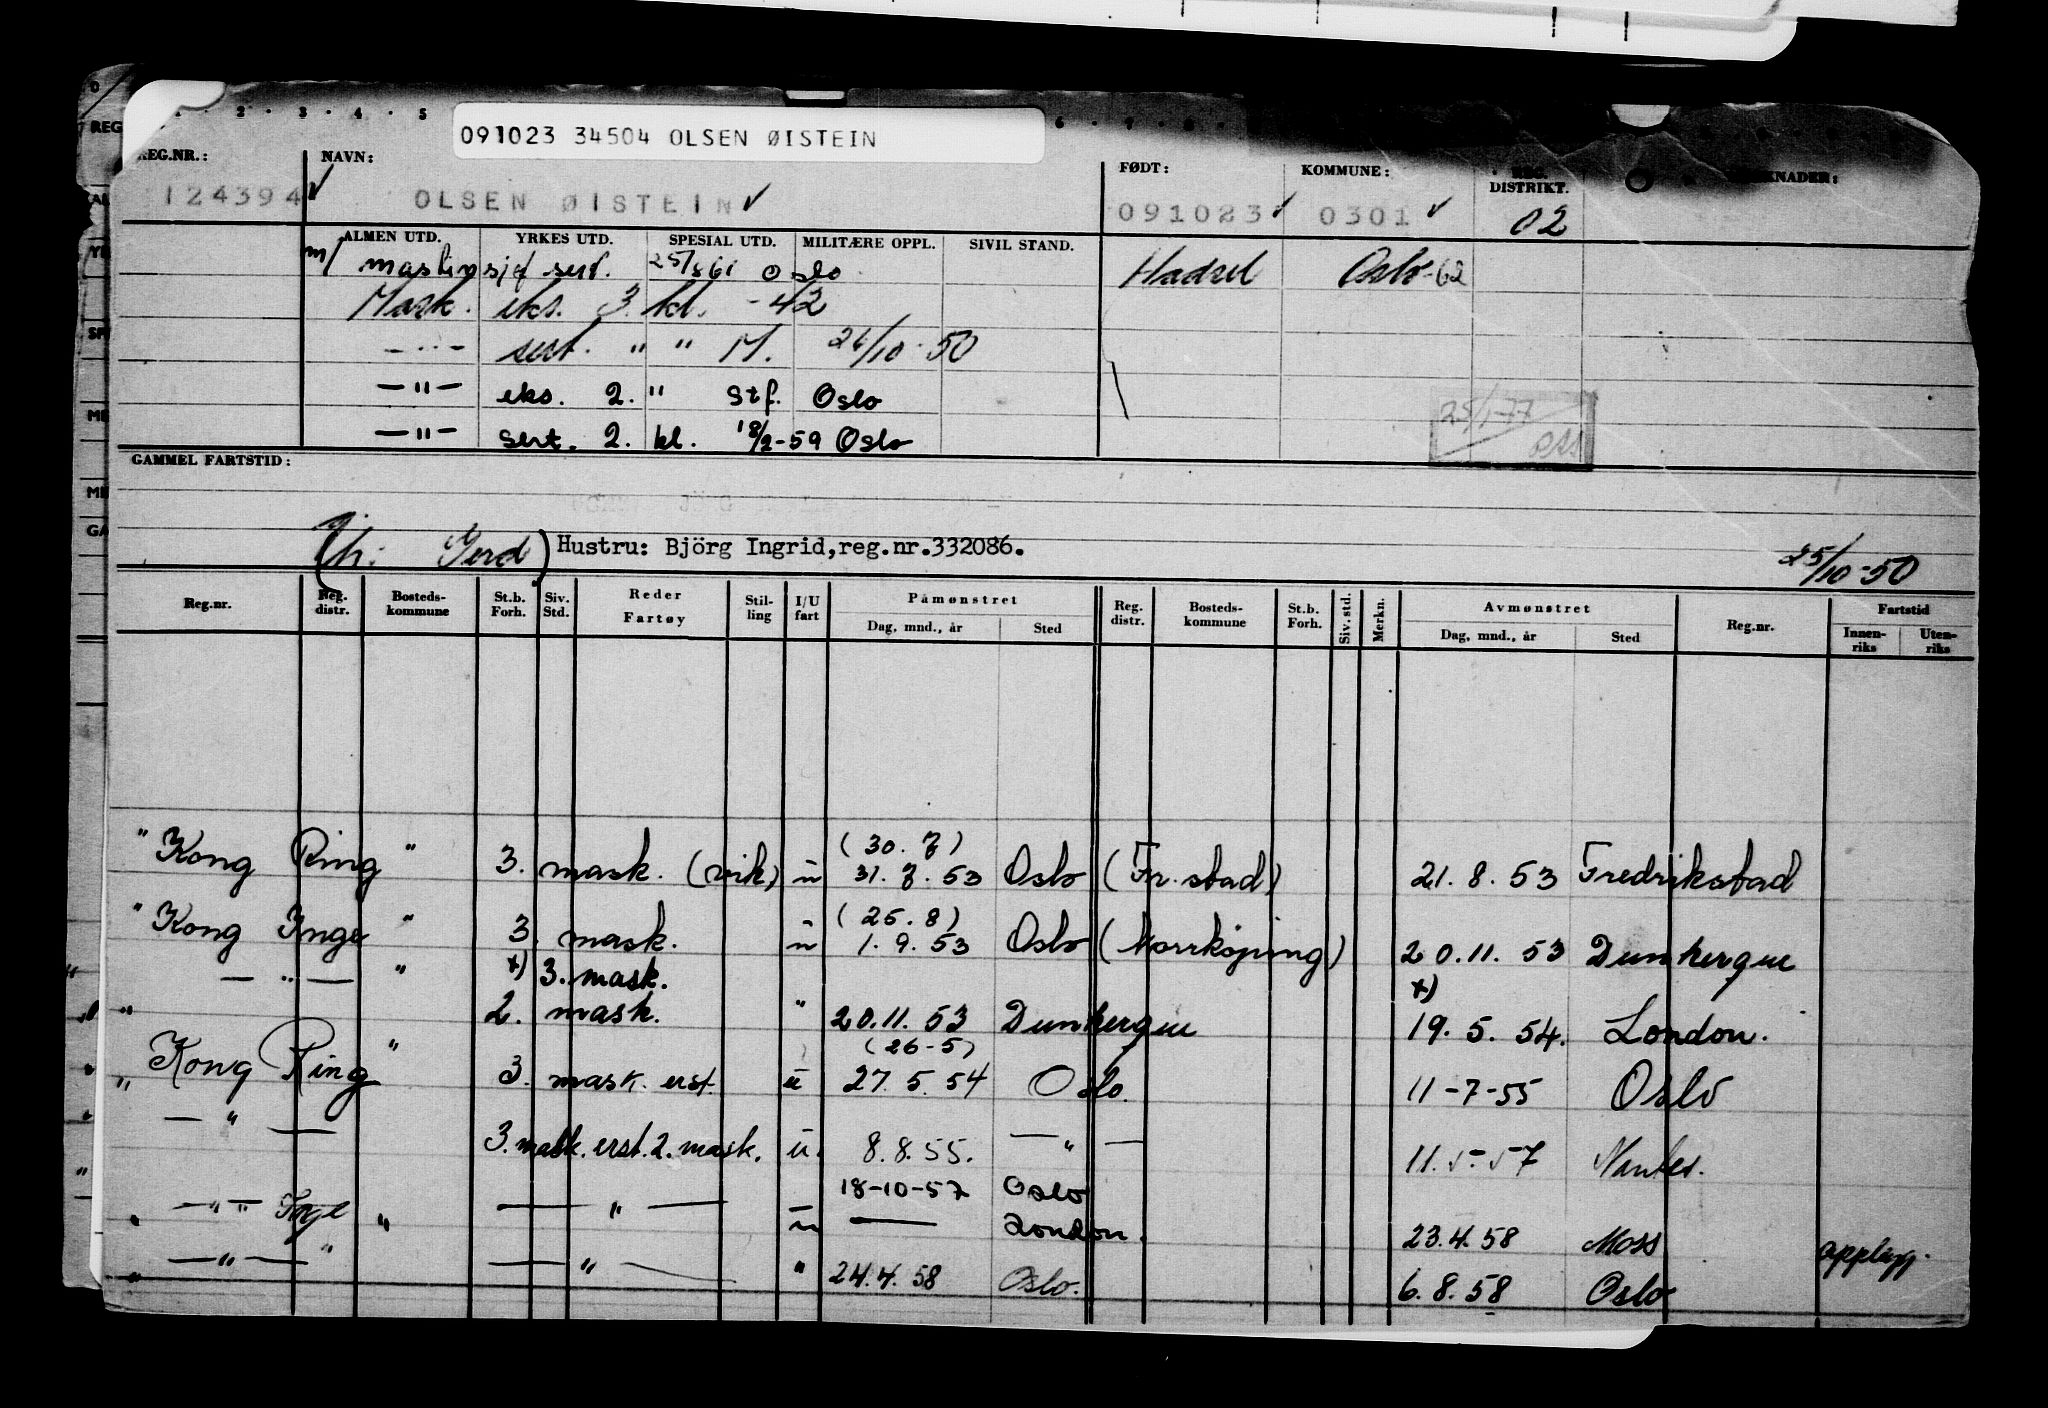 1 · 2 · 3 · 4 · 5
6 · 7 · 8
091023 34504 OLSEN ØISTEIN
REG.NR.: NAVN: FØDT: KOMMUNE: REG. DISTRIKT.
124394 OLSEN ØISTEIN 091023 0301 02
ALMEN UTD. YRKES UTD. SPESIAL UTD. MILITÆRE OPPL. SIVIL STAND.
m/ sert. Oslo Hadsel Oslo-62
Mask. eks. 3. kl. -42
- " - sert. " " M. 26/10-50
- " - eks. 2. " Stf. Oslo
- " - sert. 2. kl. 18/2-59 Oslo
25/1-77
GAMMEL FARTSTID:
Gerd) Hustru: Björg Ingrid,reg.nr.332086. 25/10-50
Reg.nr. Reg. distr. Bosteds- kommune St.b. Forh. Siv. Std. Reder Fartøy Stil- ling I/U fart Påmønstret Reg. distr. Bosteds- kommune St.b. Forh. Siv. std. Merkn. Avmønstret Reg.nr. Fartstid
Dag, mnd., år Sted Dag, mnd., år Sted Innen- riks Uten- riks
(30. 7)
" Kong Ring " 3. mask. (vik) u 31. 7. 53 Oslo (Fr.stad) 21. 8. 53 Fredrikstad
(25. 8)
" Kong Inge " 3. mask. u 1. 9. 53 Oslo (Norrkøping) 20. 11. 53 Dunkerque
" - " - " x) 3. mask. x)
" 2. mask. " 20. 11. 53 Dunkerque 19. 5. 54. London.
(26-5)
" Kong Ring " 3. mask. erst. u 27. 5. 54 Oslo. 11-7-55 Oslo
- " - 3. mask. erst. 2. mask. u. 8. 8. 55. - " - 11. 5. 57 Nantes.
18-10-57 Oslo
" - " - Inge " - " - u - London. 23. 4. 58 Moss opplegg.
" - " - " - " - " 24. 4. 58 Oslo. 6. 8. 58 Oslo